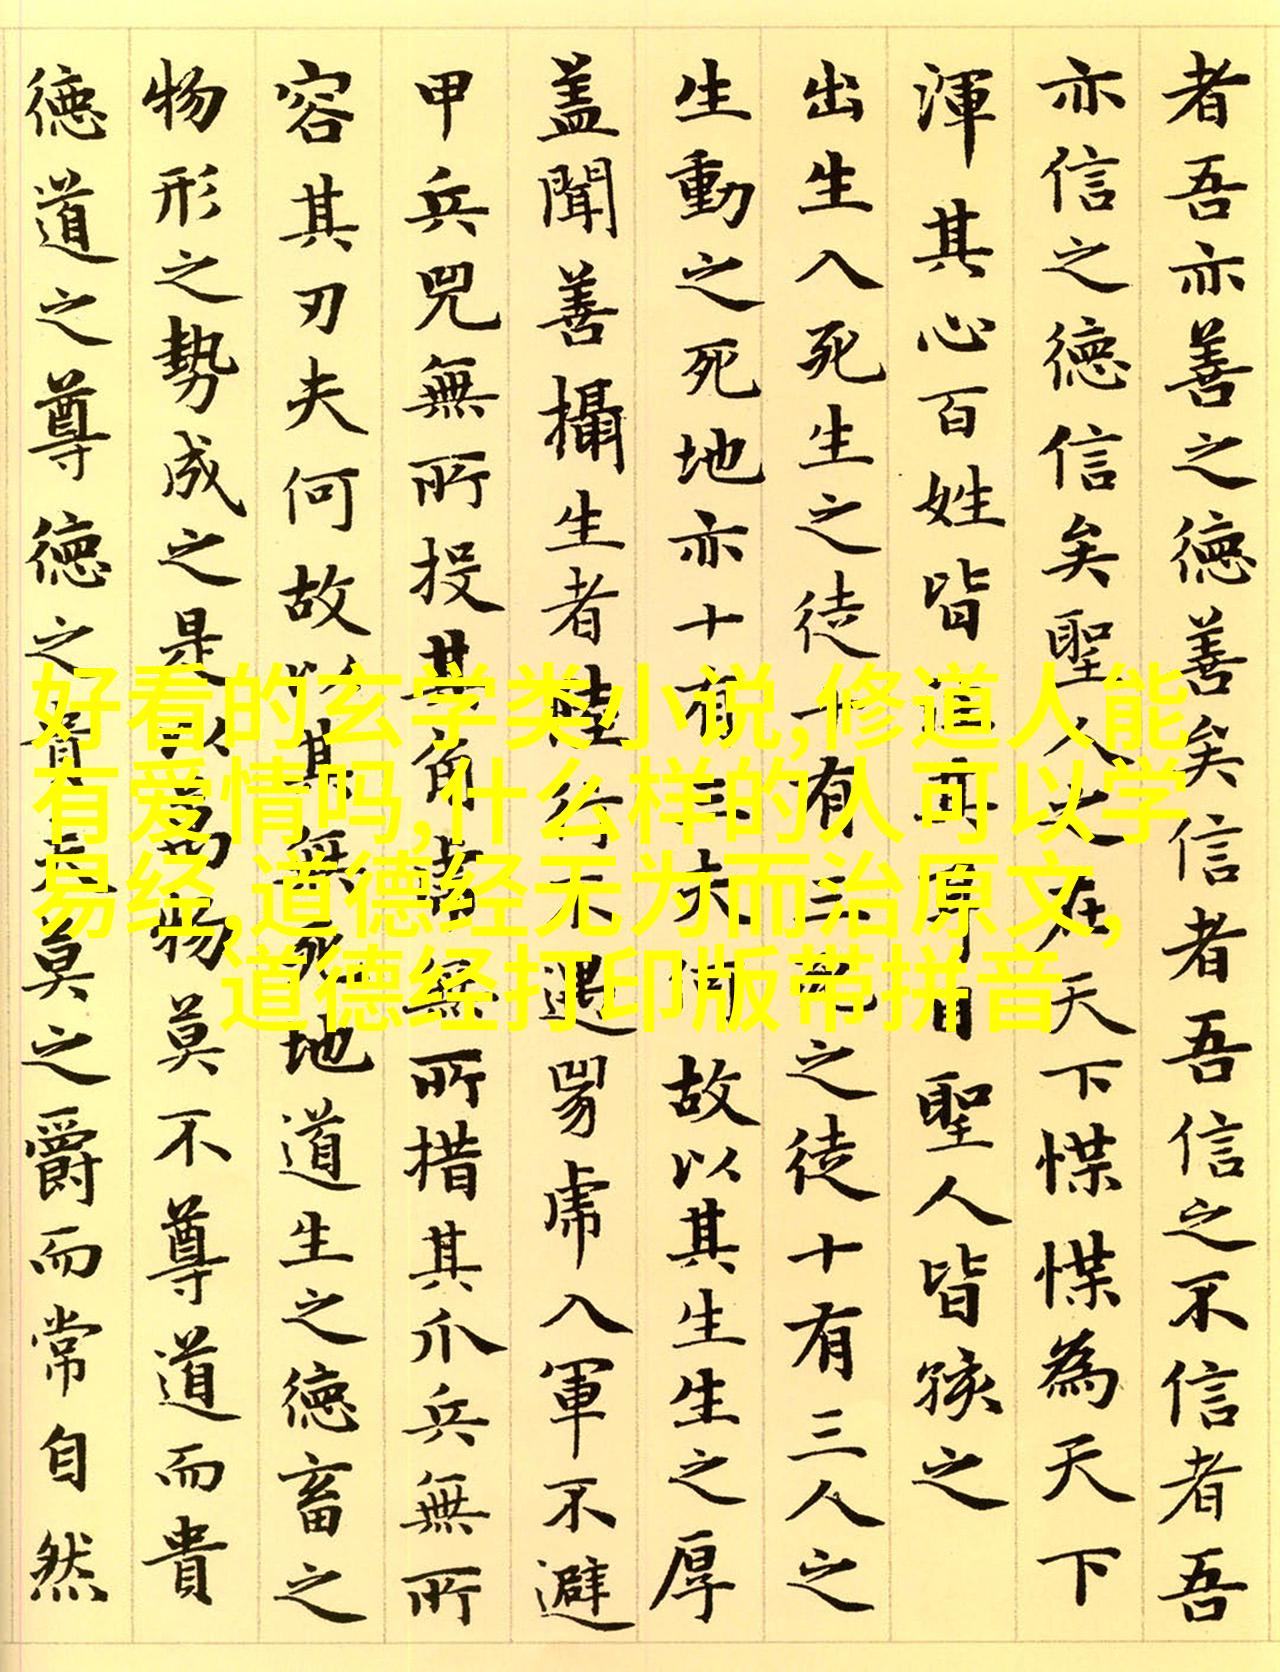 者吾亦善之德善矣信者吾信之不信者吾
亦信之德信矣聖人之在天下惵惵為天下
渾其心百姓皆注其耳目聖人皆孩之
出生入死生之徒十有三死之徒十有三人之
生動之死地亦十有三夫何故以其生生之厚
蓋聞善攝生者陸行不遇兕虎入軍不避
甲兵兕無所投其角虎無所措其爪兵無所
容其刃夫何故以其無死地道生之德畜之
物形之勢成之是以萬物莫不尊道而貴
德道之尊德之貴夫莫之爵而常自然
好看的玄学类小说,修道人能
有爱情吗,什么样的人可以学
易经,道德经无为而治原文,
道德经打印版带拼音